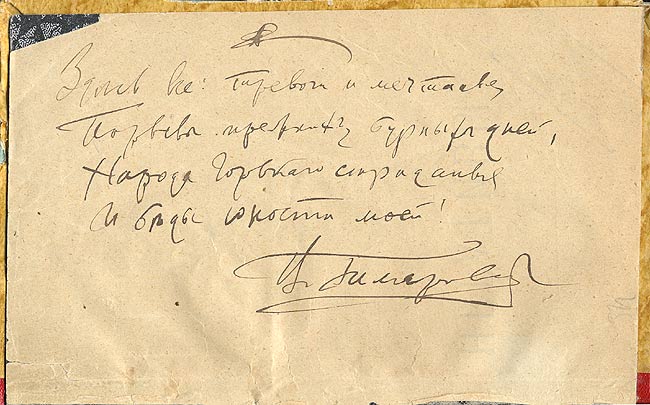 Здесь все: тревоги и мечтанья,
Порывы прежнихъ бурныхъ дней,
Народа Горькаго страданья
И бѣды юности моей!
Вл. Гиляровский